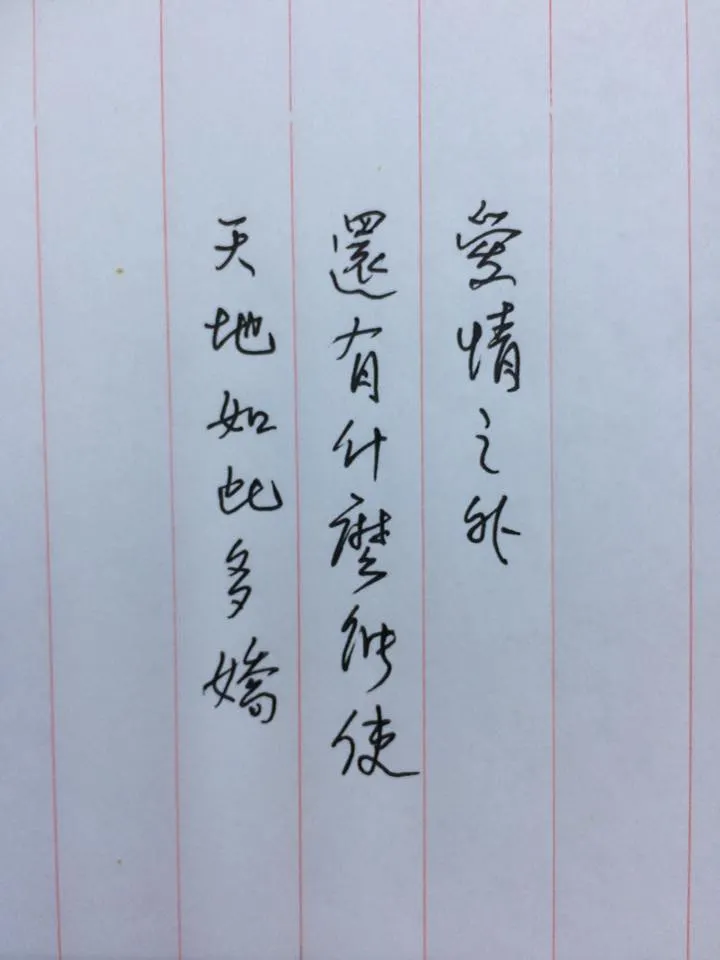 愛情之外
還有什麼能使
天地如此多嬌